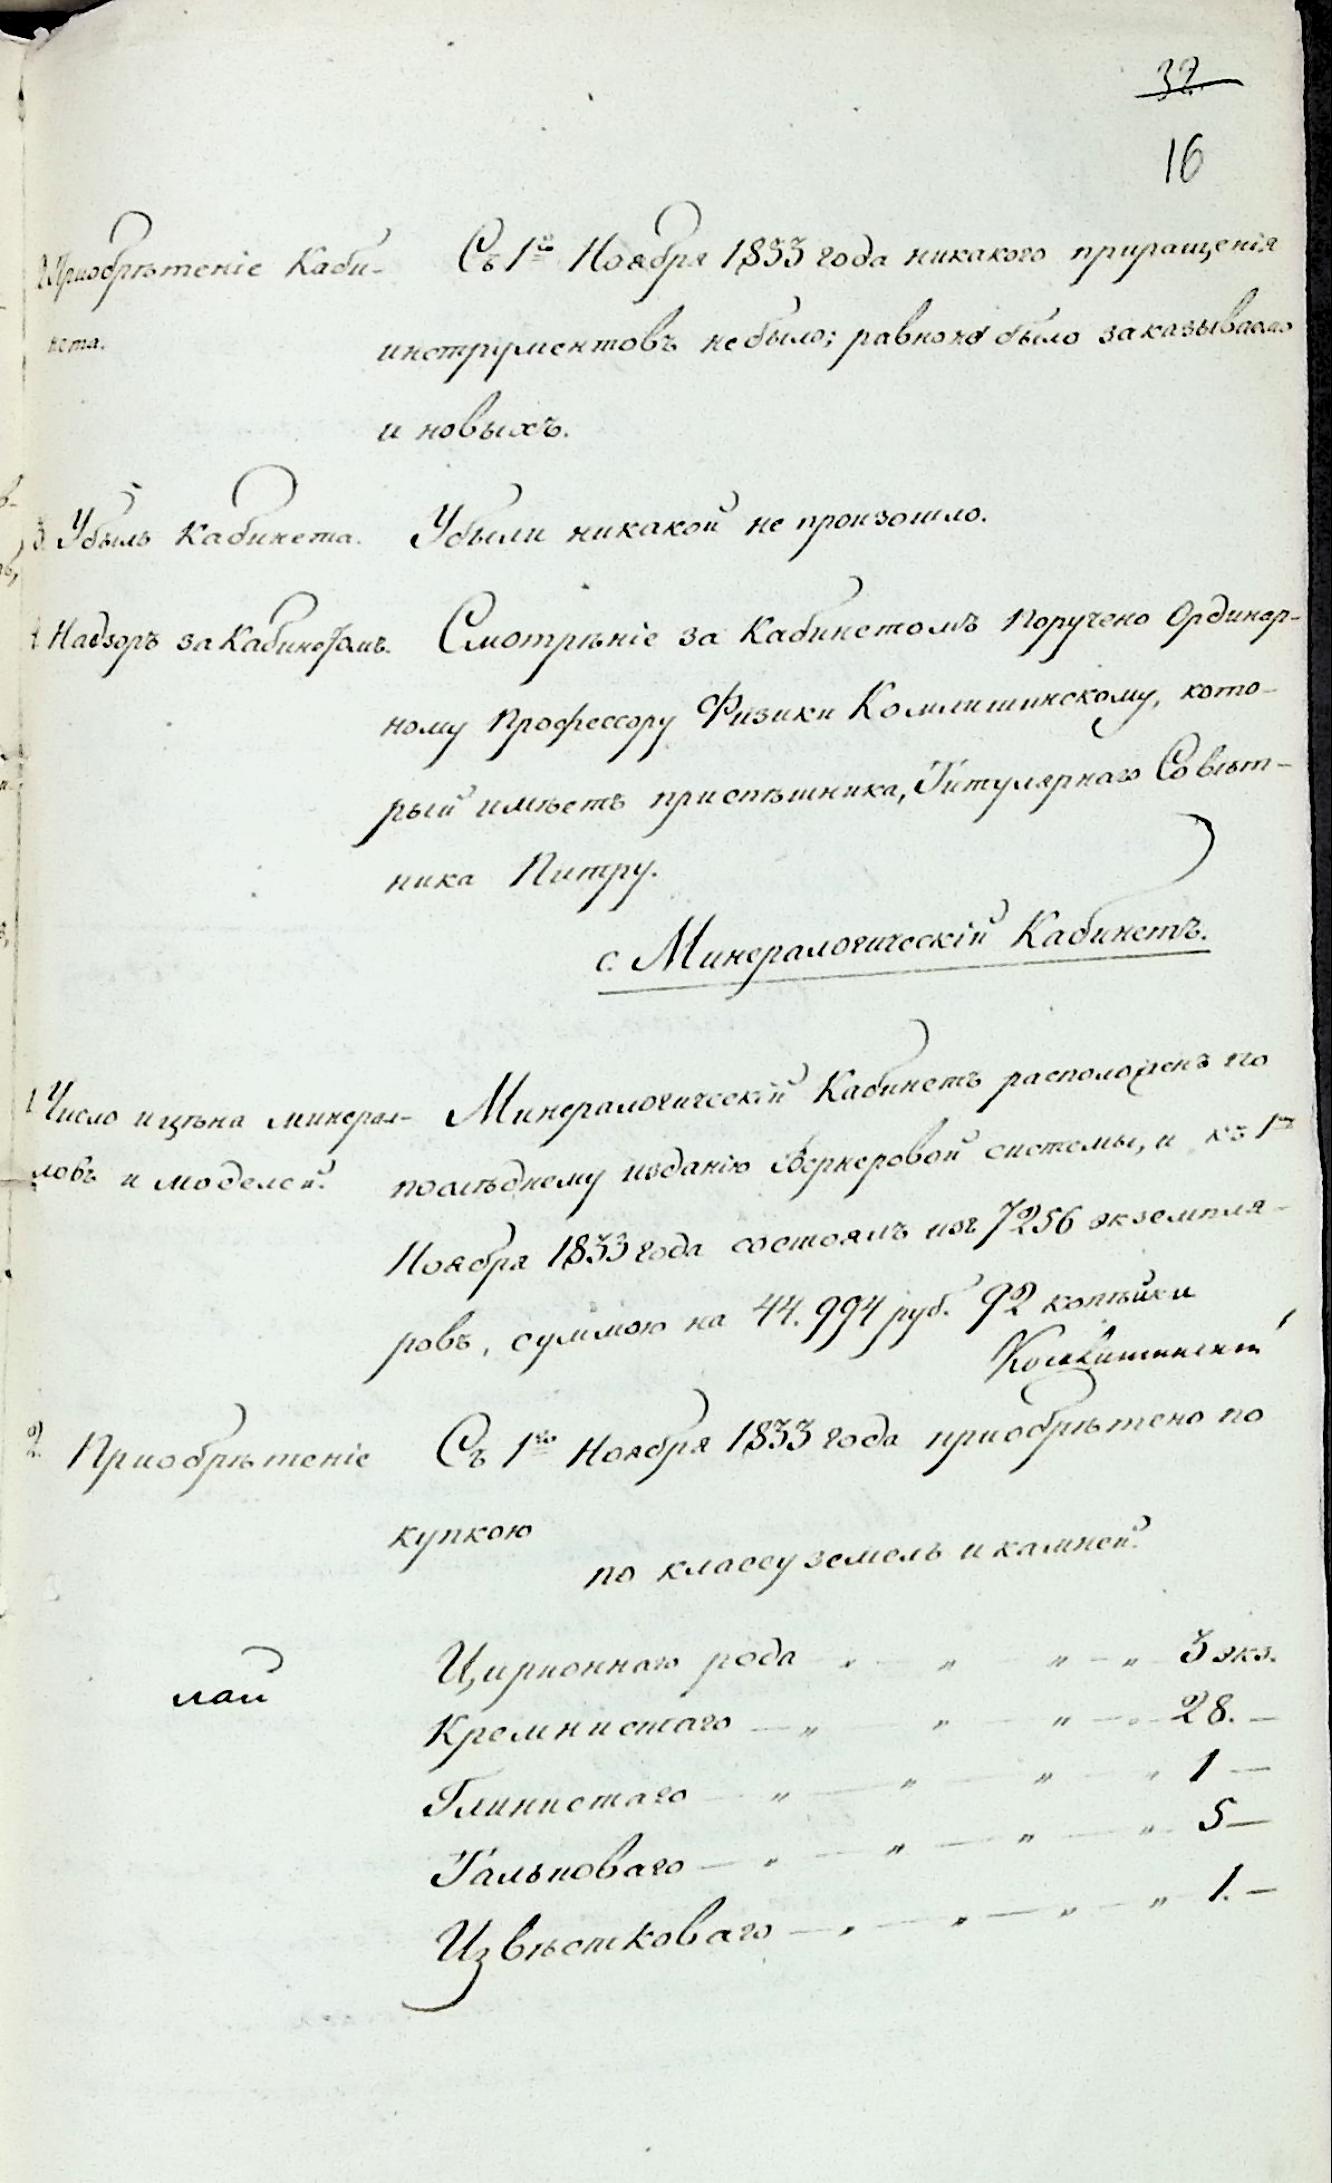 32
16
2. Приобрѣтеніе Каби-
нета.
Съ 1го Ноября 1833 года никакого приращенія
инструментовъ небыло; равно не было заказываемо
и новыхъ.
3. Убыль Кабинета.
Убыли никакой не произошло.
4. Надзоръ за Кабинетомъ.
Смотрѣніе за Кабинетомъ поручено Ординар-
ному Профессору Физики Комлишинскому, кото-
рый имѣетъ приспѣшника, Титулярнаго Совѣт-
ника Питру.
с. Минералогическій Кабинетъ.
1. Число и цѣна минера-
ловъ и моделей.
Минералогическій Кабинетъ расположенъ по
послѣднему изданію Вернеровой системы, и къ 1му
Ноября 1833 года состоялъ изъ 7256 экземпля-
ровъ, суммою на 44.994 руб. 92 копѣйки
Комлишинскій
2. Приобрѣтеніе
Съ 1го Ноября 1833 года приобрѣтено по
купкою
по классу земель и камней.
Цирконнаго рода — „ — „ „ — „ — 3 экз.
Кремнистаго — „ — „ — „ — „ — 28. —
Глинистаго — „ — „ — „ — „ 1 —
Талькова́го — „ — „ — „ — „ 5 —
Известковаго — „ — „ — „ — „ 1. —
лай